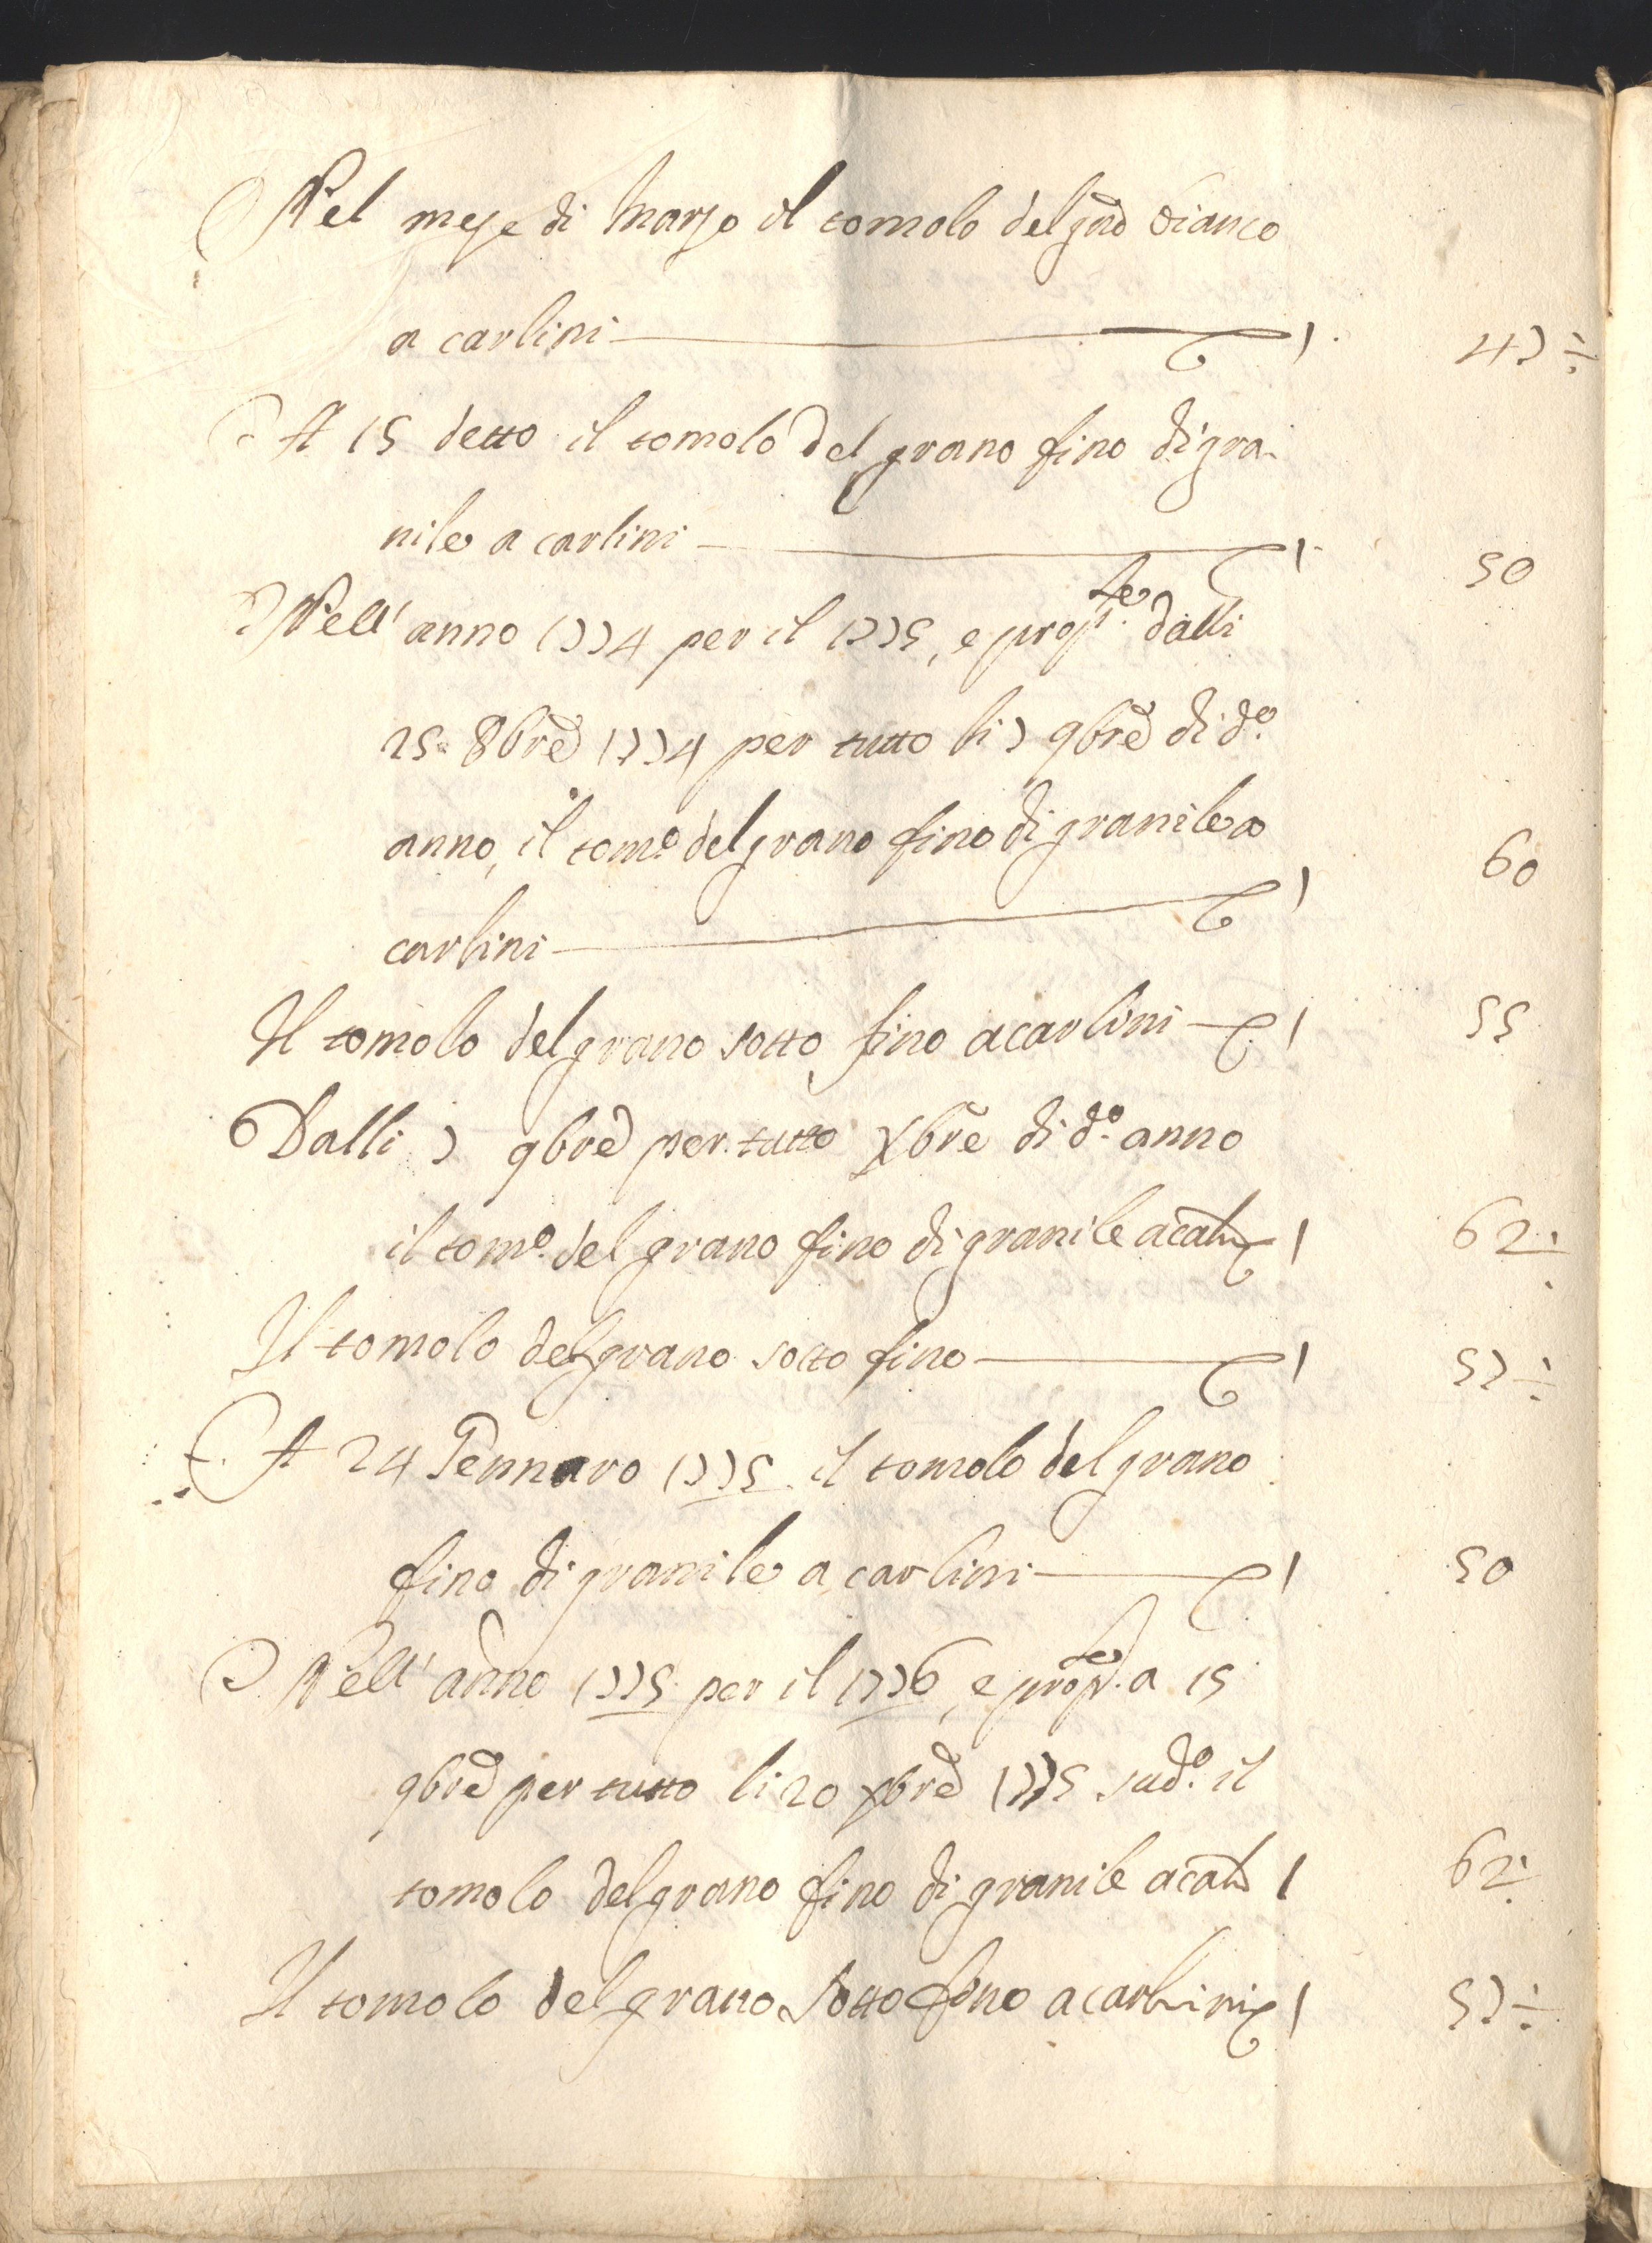 Nel mese di Marzo il tomolo del grño bianco
a carlini 47 ÷
A 15 detto il tomolo del grano fino di gra-
nile a carlini 50
Nell' anno 1774 per il 1775, e prop.te dalli
25 8brẽ 1774 per tutto li 7 9brẽ di d.o
anno, il tom.o del grano fino di granile a 60
carlini
Il tomolo del grano sotto fino a carlini 55
Dalli 7 9brẽ per tutto Xbrẽ di d.o anno
il tom.o del grano fino di granile a carl 62 ÷
Il tomolo del grano sotto fino 57 ÷
A 24 Gennaro 1775 il tomolo del grano
fino di granile a carlini 50
Nell' anno 1775 per il 1776, e prop.te a 15
9brẽ per tutto li 20 Xbrẽ 1775 sud.o il
tomolo del grano fino di granile a carl 62 ÷
Il tomolo del grano sotto fino a carlini 57 ÷